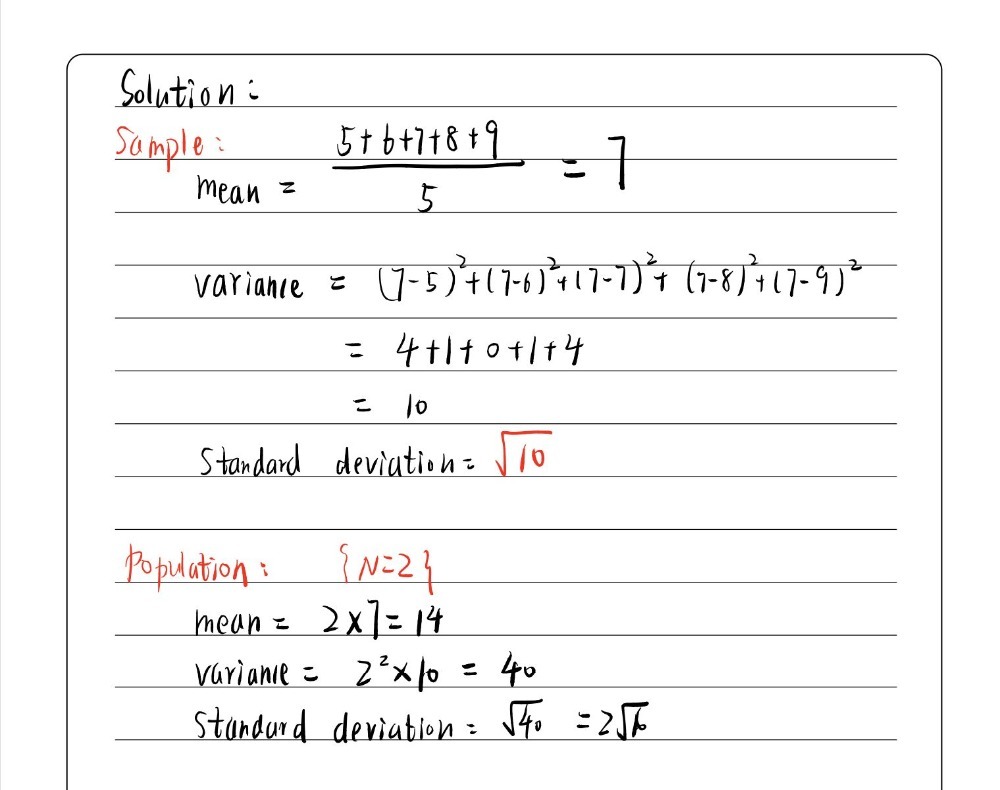 Solution:
Sample:
mean = (5+6+7+8+9)/5 = 7
variance = (7-5)²+(7-6)²+(7-7)²+(7-8)²+(7-9)²
= 4+1+0+1+4
= 10
Standard deviation = √10
Population: {N=2}
mean = 2×7=14
variance = 2²×10 = 40
Standard deviation = √40 = 2√10